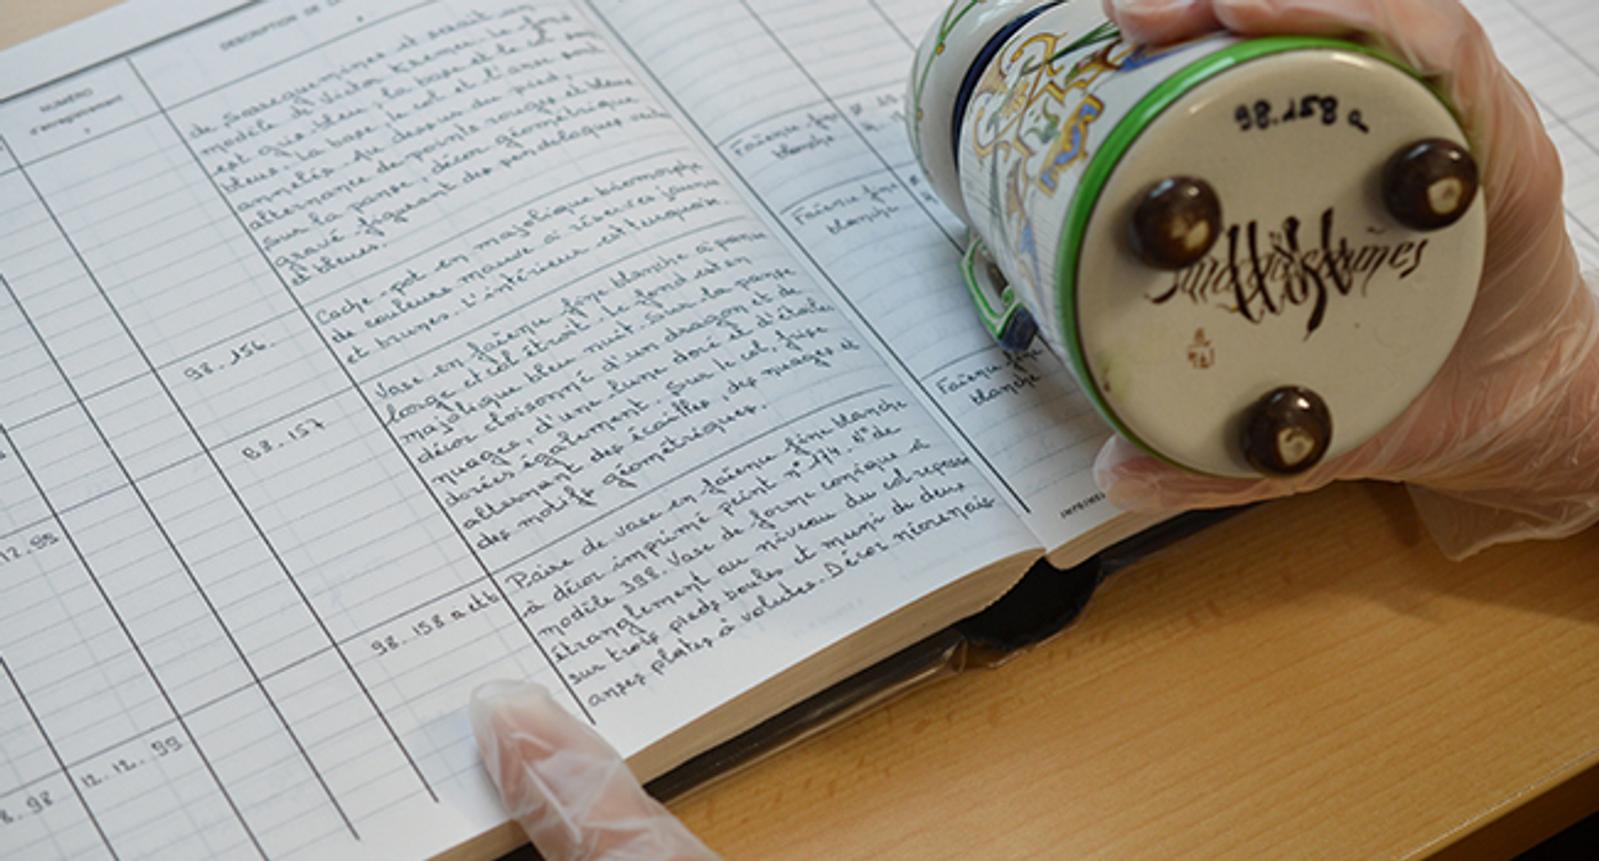 DESCRIPTION DE
NUMÉRO
d'enregistrement
de Sarreguemines et serait un
modèle de Victor Kremer. Le fond
est gris bleu, la base et le col
bleus. La base, le col et l'anse sont
annelés. Au dessus du pied,
alternance de points rouges et bleus
Sur la panse, décor géométrique
gravé figurant des pendeloques vertes
et bleues.
98.156.
Cache-pot en majolique
de couleurs mauve à réserves jaune
et brunes. L'intérieur est turquoise.
88.157
Vase en faïence fine blanche à panse
large et col étroit. Le fond est en
majolique bleu nuit. Sur la panse
décor cloisonné d'un dragon et de
nuages, d'une lune doré et d'étoiles
dorées également. Sur le col, frise
alternant des écailles, des nuages et
des motifs géométriques.
98.158 a et b
Paire de vase en faïence fine blanche
à décor imprimé peint n° 174. N° de
modèle 398. Vase de forme conique à
étranglement au niveau du col reposant
sur trois pieds boules et muni de deux
anses plates à volutes. Décor néorenais
12.99
8.98
12.12.99
Faïence fine
blanche
Faïence fine
blanche
Faïence fine
blanche
98.158 a
Sarreguemines